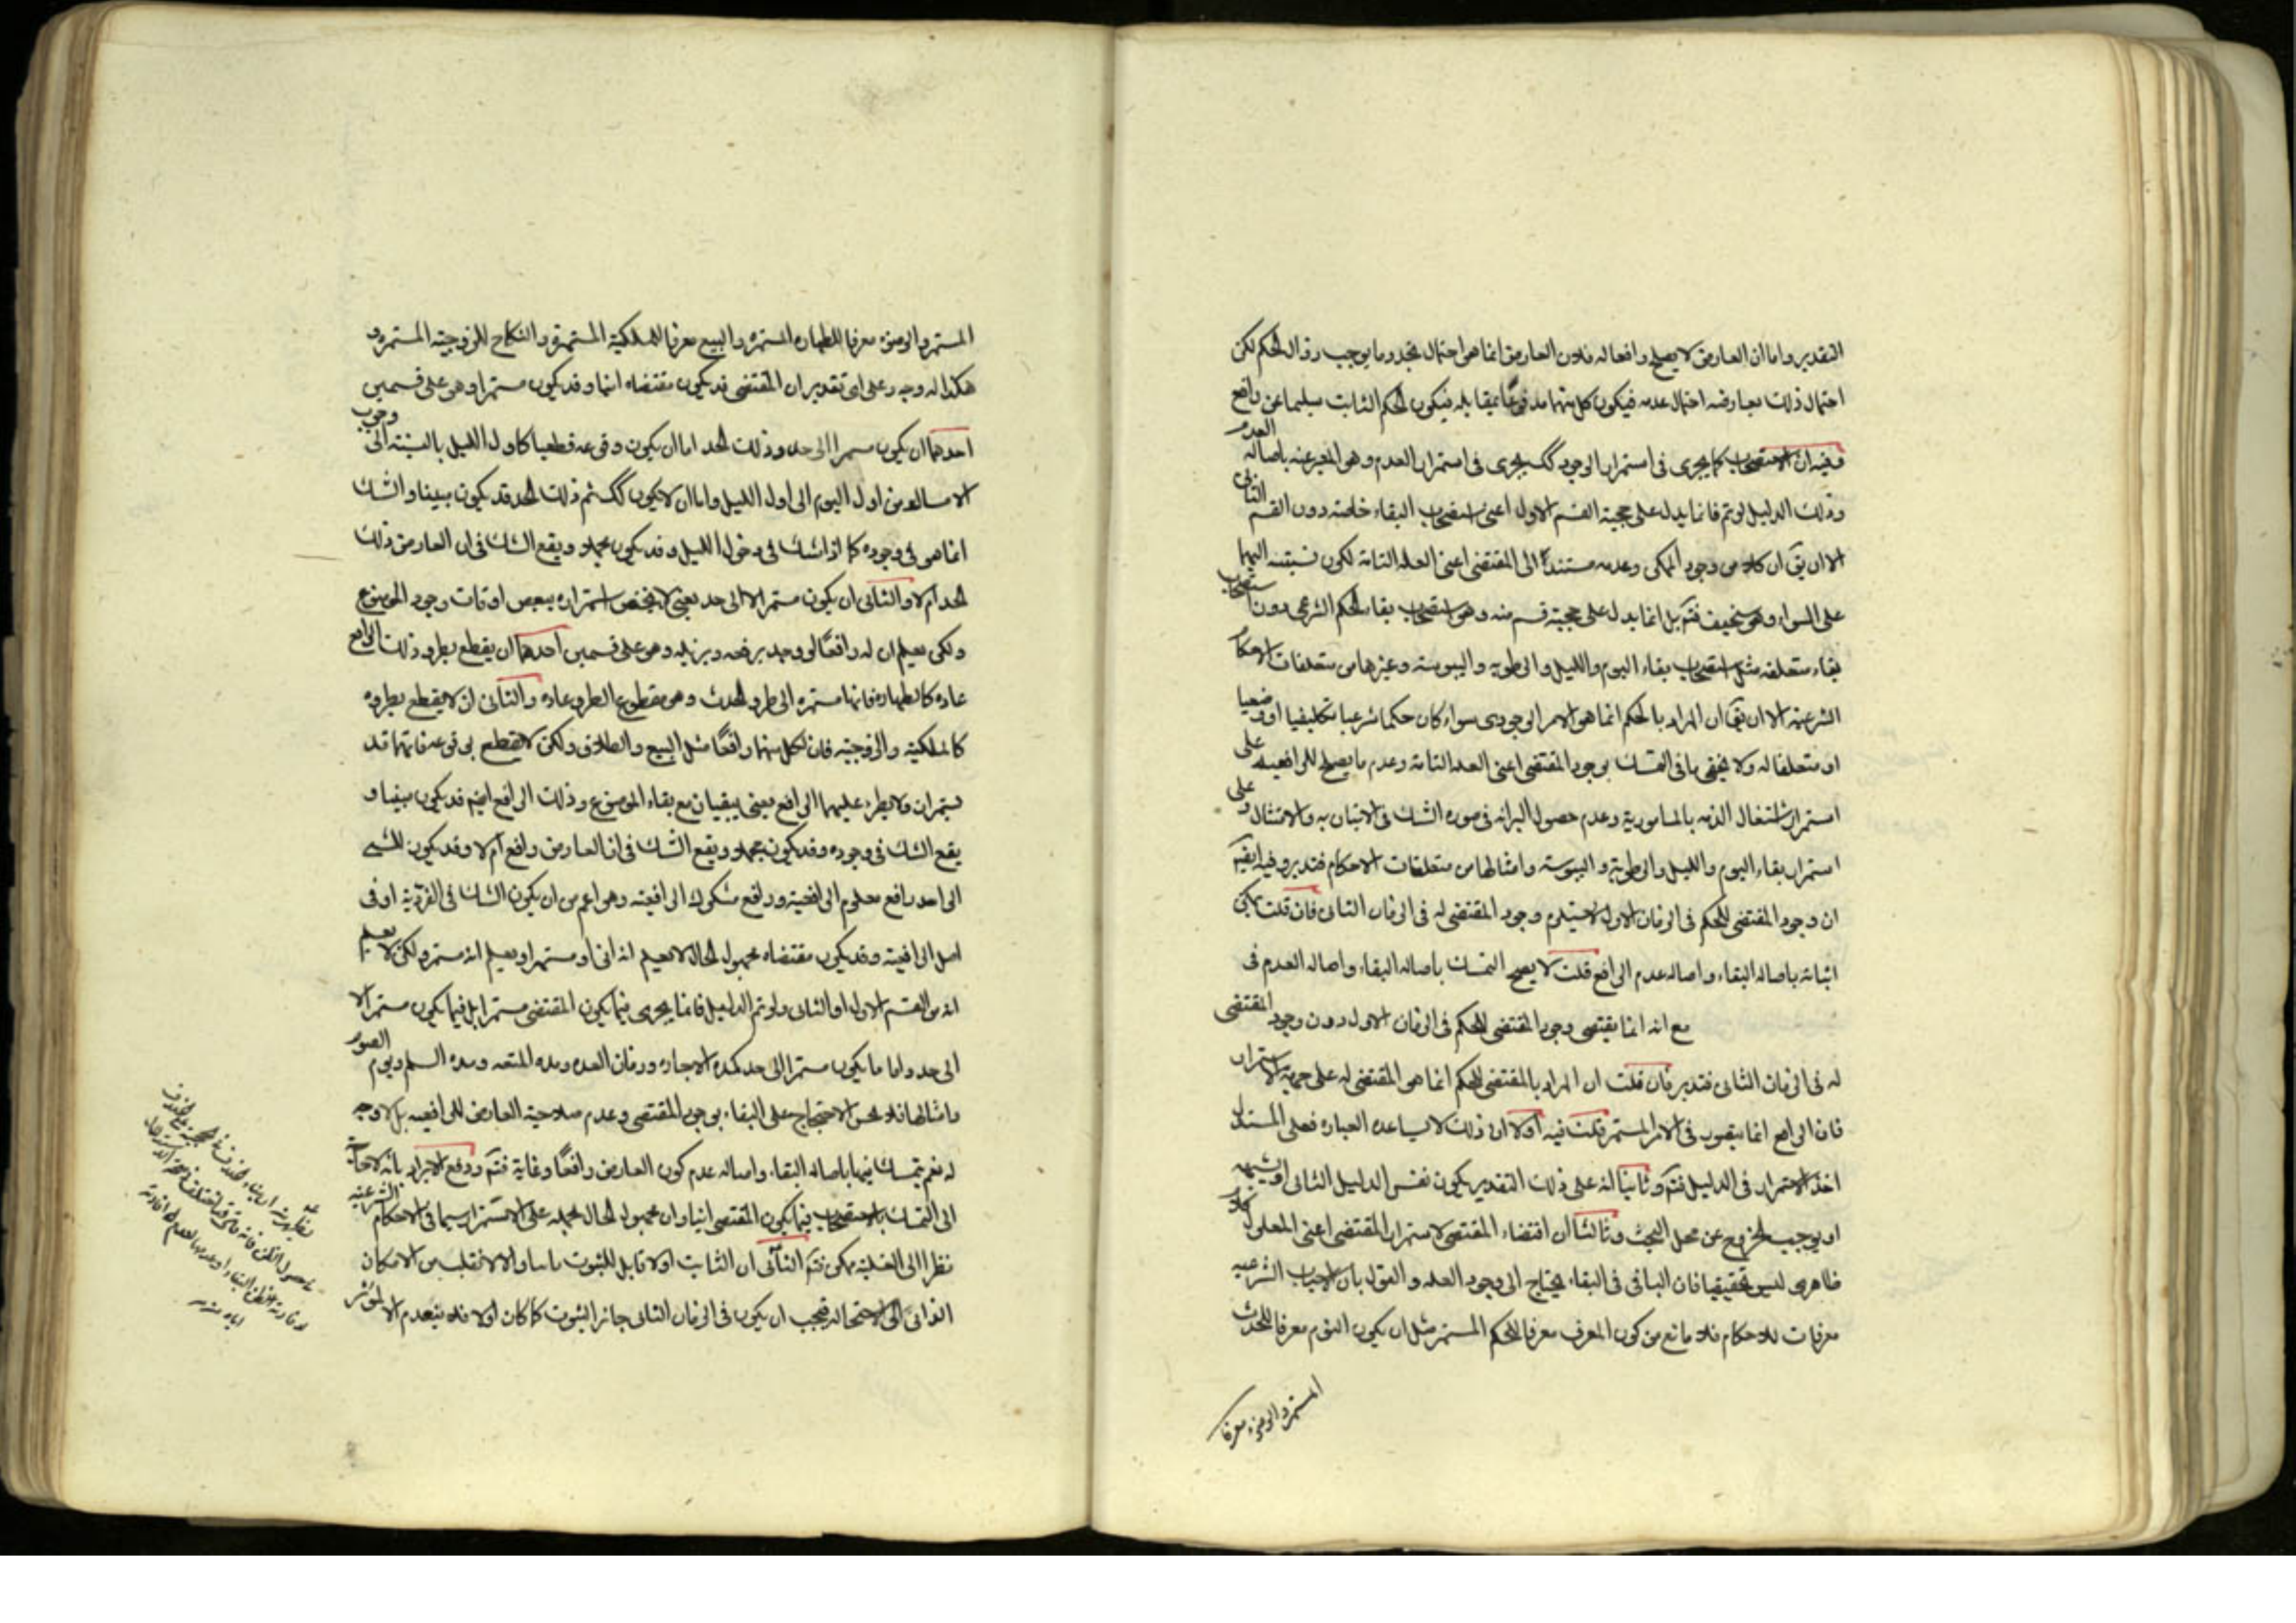 التقدير واما ان العارض لا يصلح رافعا له فلان العارض انما هو احتمال تجدد ما يوجب زوال الحكم لكن
احتمال ذلك يعارضه احتمال عدمه فيكون كل منهما مدفوعا بمقابله فيكون الحكم الثابت سليما عن رافع
وفيه ان الاستصحاب كما يجرى فى استمرار الوجود كك يجرى فى استمرار العدم وهو المعبر عنه باصالة العدم
وذلك الدليل لو تم فانما يدل على حجية القسم الاول اعنى استصحاب البقاء خاصة دون القسم الثانى
الا ان يق ان كلا من وجود الممكن وعدمه مستندا الى المقتضى اعنى العلة التامة لكون نسبته اليهما
على السواء وهو سخيف فتم بل انما يدل على حجية قسم منه وهو استصحاب بقاء الحكم الشرعى دون استصحاب
بقاء متعلقه مثل استصحاب بقاء اليوم والليل والرطوبة واليبوسة وغيرها من متعلقات الاحكام
الشرعية الا ان يق ان المراد بالحكم انما هو الامر الوجودى سواء كان حكما شرعيا تكليفيا او وضعيا
او متعلقا له ولا يخفى ما فى التمسك بوجود المقتضى اعنى العلة التامة وعدم ما يصلح للرافعية على
استمرار اشتغال الذمة بالمامور به وعدم حصول البرائة فى صورة الشك فى الاتيان به والامتثال وعلى
استمرار بقاء اليوم والليل والرطوبة واليبوسة وامثالها من متعلقات الاحكام فتدبر وفيه ايضا
ان وجود المقتضى للحكم فى الزمان الاول لا يستلزم وجود المقتضى له فى الزمان الثانى فان قلت يمكن
اثباته باصالة البقاء واصالة عدم الرافع قلت لا يصح التمسك باصالة البقاء واصالة العدم فى
مع انه انما يقتضى وجود المقتضى للحكم فى الزمان الاول دون وجود المقتضى
له فى الزمان الثانى فتدبر فان قلت ان المراد بالمقتضى للحكم انما هو المقتضى له على جهة الاستمرار
فان الرافع انما يتصور فى الامر المستمر قلت فيه اولا ان ذلك لا يساعده العبارة فعلى المستدل
اخذ الاستمرار فى الدليل فتم وثانيا انه على ذلك التقدير يكون نفس الدليل الثانى او شبهه
او يوجب الخروج عن محل البحث وثالثا ان اقتضاء المقتضى لاستمرار المقتضى اعنى المعلول كلام
ظاهرى ليس تحقيقيا فان الباقى فى البقاء يحتاج الى وجود العلة والقول بان الاسباب الشرعية
معرفات للاحكام فلا مانع من كون المعرف معرفا للحكم المستمر مثل ان يكون النوم معرفا للحدث
المستمر والوضوء معرفا
المستمر والوضوء معرفا للطهارة المستمرة والبيع معرفا للملكية المستمرة والنكاح للزوجية المستمرة و
هكذا له وجه وعلى اى تقدير ان المقتضى قد يكون مقتضاه انيا وقد يكون مستمرا وهو على قسمين
احدهما ان يكون مستمرا الى حد وذلك الحد اما ان يكون وقوعه قطعيا كاول الليل بالنسبة الى وجوب
الامساك من اول اليوم الى اول الليل واما ان لا يكون كك ثم ذلك الحد قد يكون مبينا والشك
انما هو فى وجوده كما اذا شك فى دخول الليل وقد يكون مجملا ويقع الشك فى ان العارض ذلك
الحد ام لا والثانى ان يكون مستمرا لا الى حد يعنى لا يختص استمراره ببعض اوقات وجود الموضوع
ولكن يعلم ان له رافعا لو وجد يرفعه ويزيله وهو على قسمين احدهما ان يقطع بطرو ذلك الرافع
عادة كالطهارة فانها مستمرة الى طرو الحدث وهو مقطوع الطرو عادة والثانى ان لا يقطع بطروه
كالملكية والزوجية فان لكل منهما رافعا مثل البيع والطلاق ولكن لا يقطع بوقوعه فانهما قد
يستمران ولا يطرء عليهما الرافع يعنى يبقيان مع بقاء الموضوع وذلك الرافع ايضم قد يكون مبينا و
يقع الشك فى وجوده وقد يكون مجملا ويقع الشك فى ان العارض رافع ام لا وقد يكون للشىء
الواحد رافع معلوم الرافعية ورافع مشكوك الرافعية وهو اعم من ان يكون الشك فى الفردية او فى
اصل الرافعية وقد يكون مقتضاه مجهول الحال لا يعلم انه انى او مستمر او يعلم انه مستمر ولكن لا يعلم
انه من القسم الاول او الثانى ولو تم الدليل فانما يجرى فيما يكون المقتضى مستمرا بل فيما يكون مستمرا لا
الى حد واما ما يكون مستمرا الى حد كمدة الاجارة وزمان العدة ومدة المتعة ومدة السلم ويوم الصوم
وامثالها فلا يحسن الاحتجاج على البقاء بوجود المقتضى وعدم صلاحية العارض للرافعية بل لا وجه
له نعم يتمسك فيها باصالة البقاء واصالة عدم كون العارض رافعا وغاية فتم ودفع الايراد بانه لا حاجة
الى التمسك بالاستصحاب فيما يكون المقتضى انيا وان مجهول الحال يحمله على الاستمرار سيما فى الاحكام الشرعية
نظرا الى الغلبة ممكن فتم الثانى ان الثابت اولا قابل للثبوت ثانيا والا لانقلب من الامكان
الذاتى الى الاستحالة فيجب ان يكون فى الزمان الثانى جائز الثبوت كما كان اولا فلا ينعدم الا لمؤثر